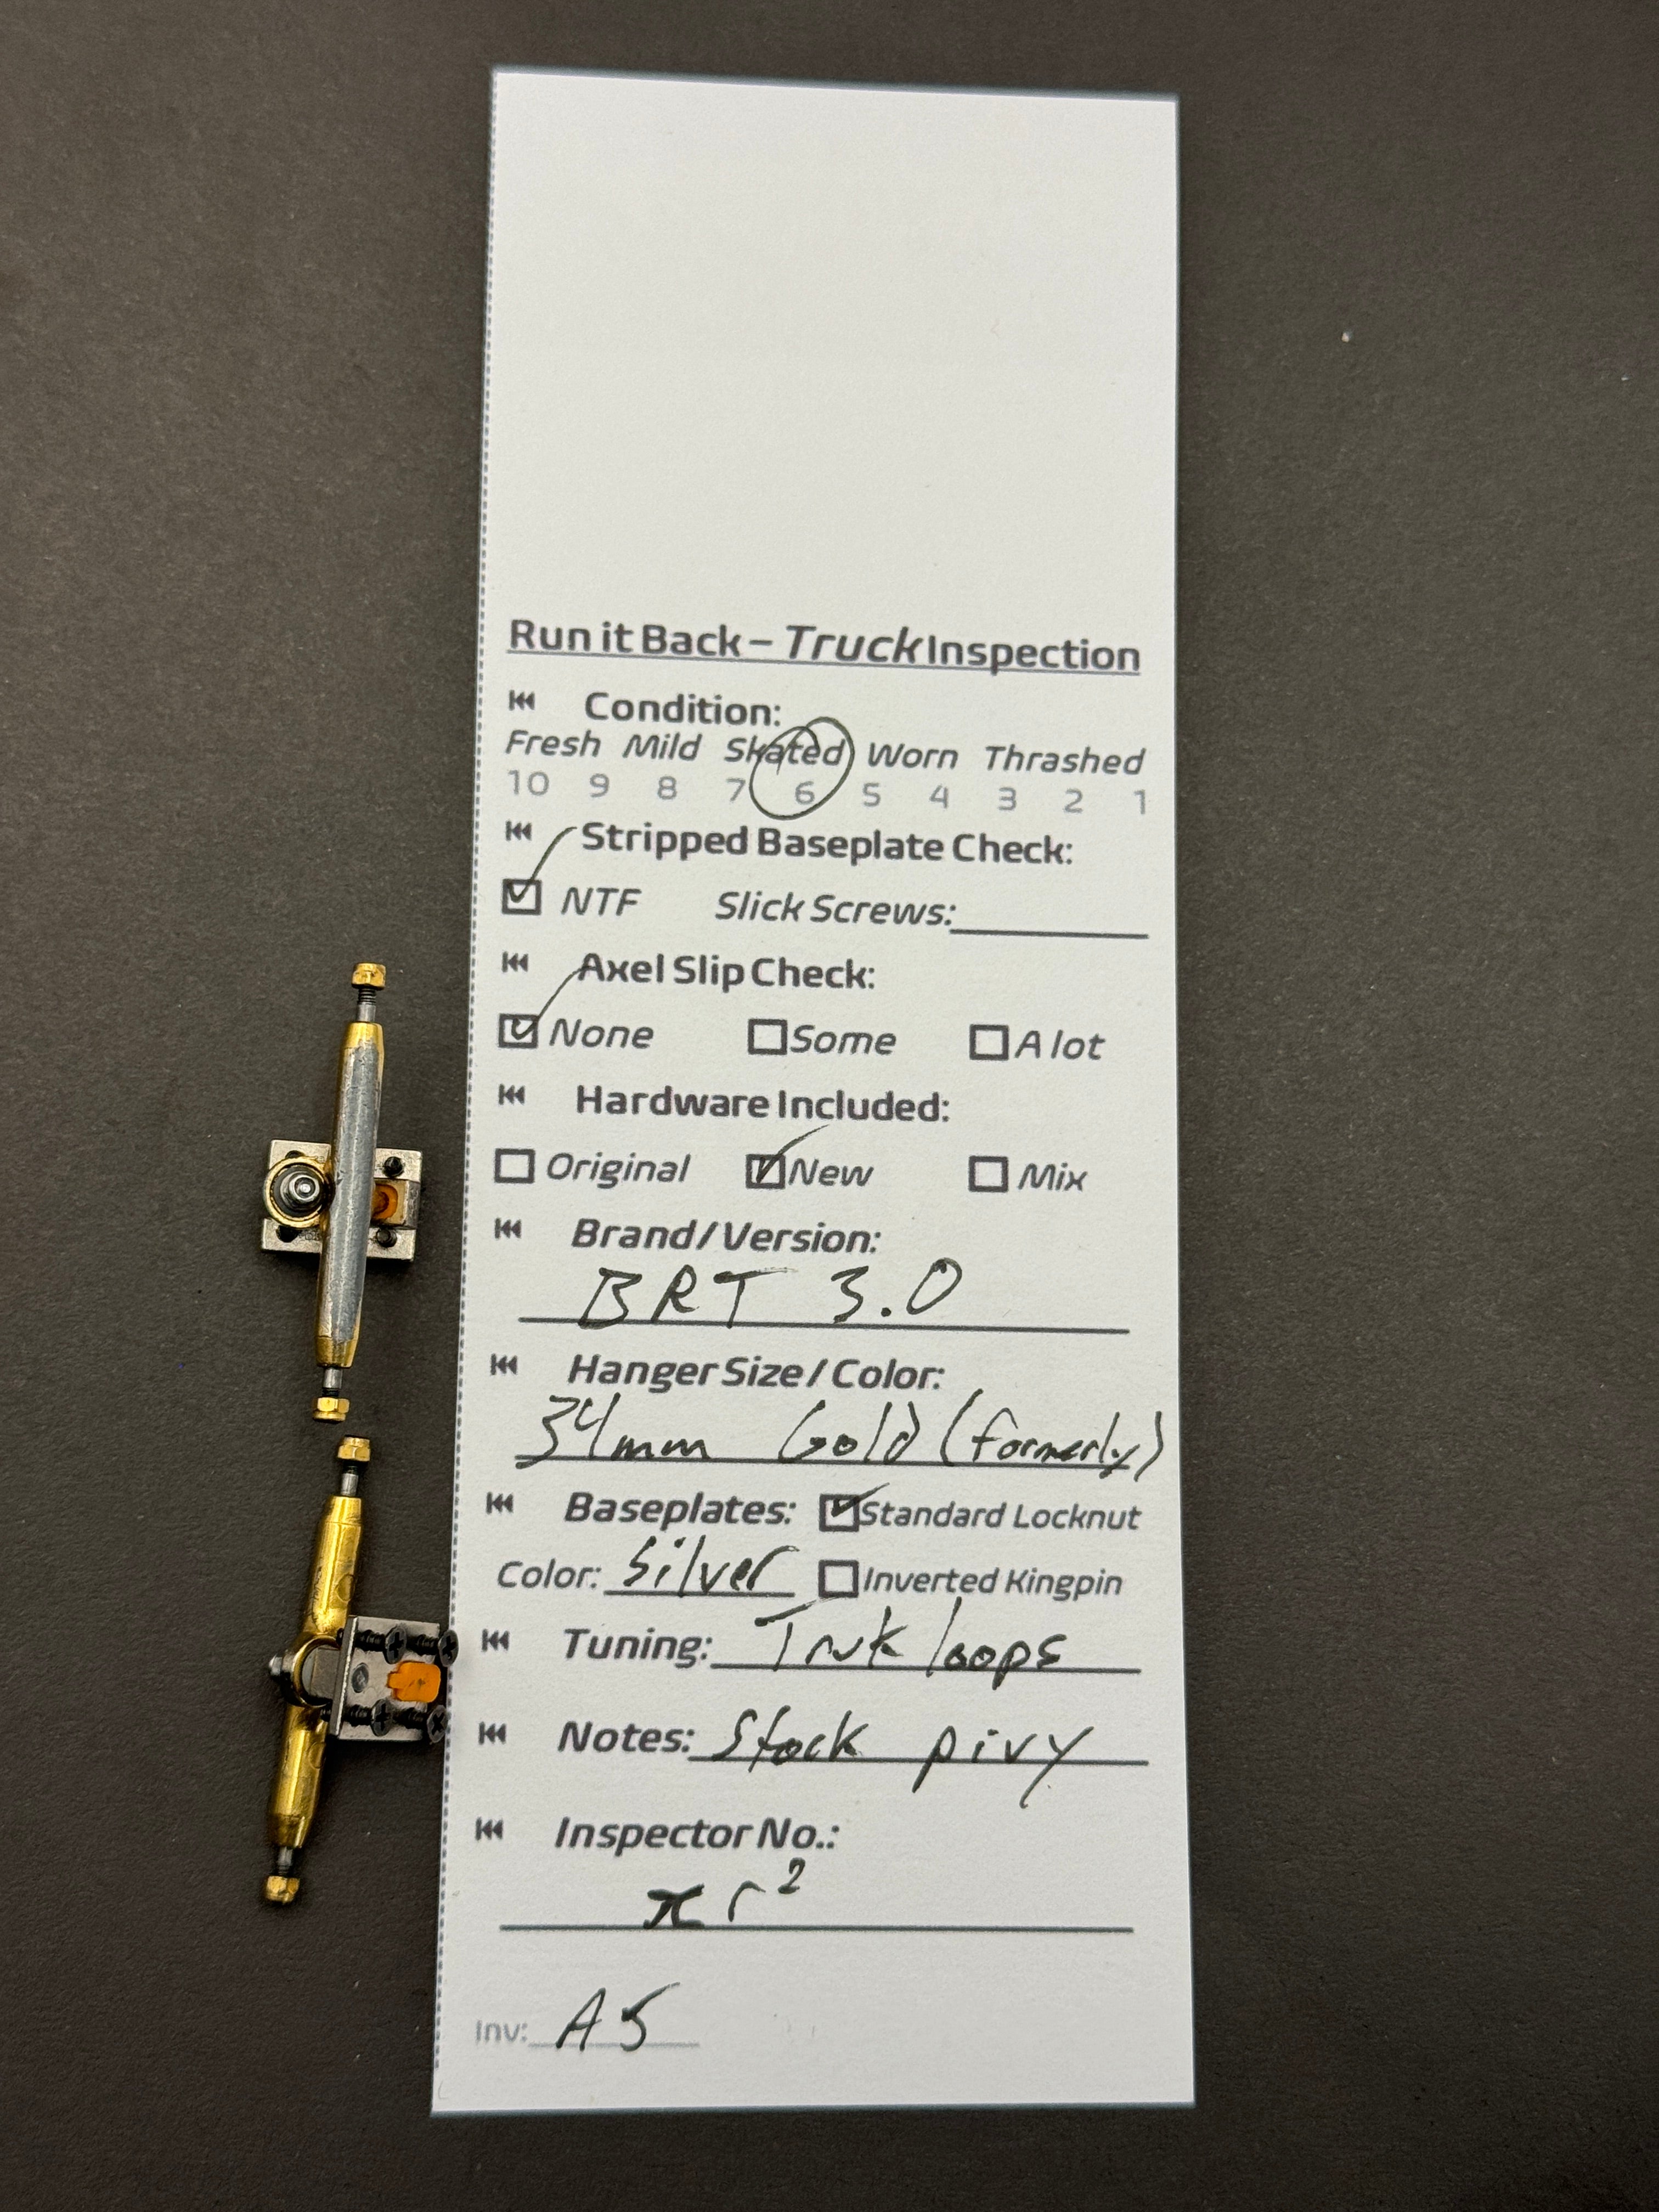 Run it Back – Truck Inspection
Condition:
Fresh Mild Skated Worn Thrashed
10 9 8 7 6 5 4 3 2 1
Stripped Baseplate Check:
NTF Slick Screws:
Axel Slip Check:
None Some A lot
Hardware Included:
Original New Mix
Brand/Version:
BRT 3.0
Hanger Size/Color:
34mm Gold (formerly)
Baseplates: Standard Locknut
Color: Silver Inverted Kingpin
Tuning: loops
Notes: Stock pivy
Inspector No.:
πr²
Inv: A5